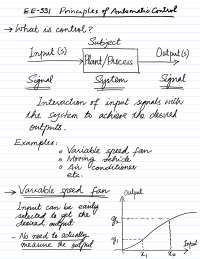 EE-331 Principles of Automatic Control
→ What is control?
Subject
Input(s)
Plant/Process
Output(s)
Signal
System
Signal
Interaction of input signals with
the system to achieve the desired
outputs.
Examples:
o Variable speed fan
o Moving vehicle
o Air conditioner
etc.
→ Variable speed fan
Output
Input can be easily
selected to get the
desired output
- No need to actually
measure the output
y2
y1
x1
x2
Input